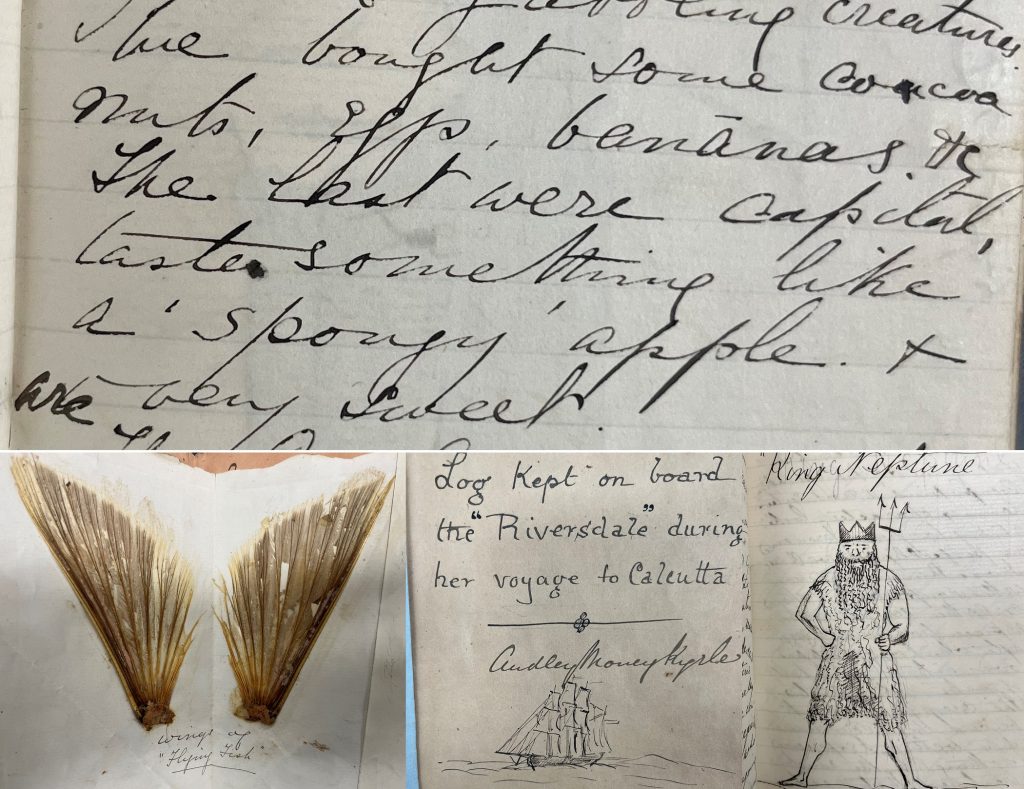 creatures.
We bought some cocoa
nuts, Eggs, bananas. &c
The last were capital,
taste something like
a 'spongy' apple. +
are very sweet.
wings of
"Flying Fish"
Log Kept on board
the "Riversdale" during
her voyage to Calcutta
Audley Money Kyrle
"King Neptune